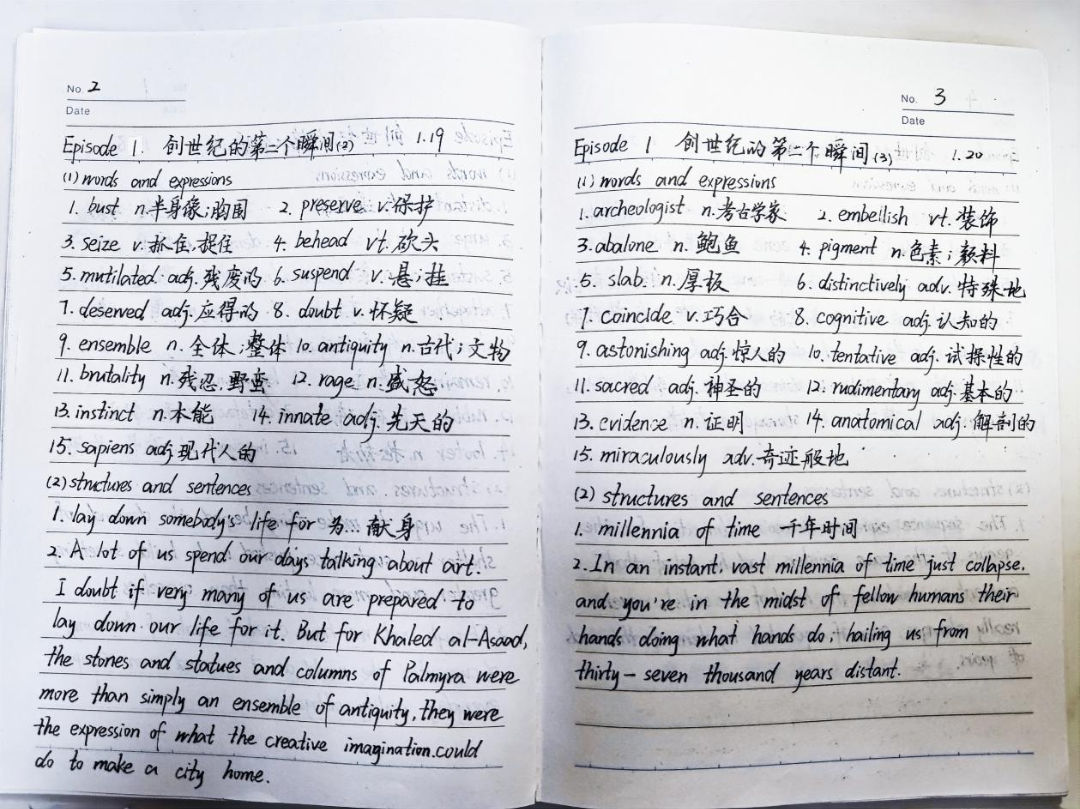 No. 2
Date
Episode 1. 创世纪的第二个瞬间(2) 1.19
(1) words and expressions
1. bust n.半身像;胸围 2. preserve v.保护
3. seize v.抓住,捉住 4. behead vt.砍头
5. mutilated adj.残废的 6. suspend v.悬;挂
7. deserved adj.应得的 8. doubt v.怀疑
9. ensemble n.全体;整体 10. antiquity n.古代;文物
11. brutality n.残忍,野蛮 12. rage n.盛怒
13. instinct n.本能 14. innate adj.先天的
15. sapiens adj.现代人的
(2) structures and sentences
1. lay down somebody's life for 为...献身
2. A lot of us spend our days talking about art.
I doubt if very many of us are prepared to
lay down our life for it. But for Khaled al-Asaad,
the stones and statues and columns of Palmyra were
more than simply an ensemble of antiquity, they were
the expression of what the creative imagination could
do to make a city home.
No. 3
Date
Episode 1 创世纪的第二个瞬间(3) 1.20
(1) words and expressions
1. archeologist n.考古学家 2. embellish vt.装饰
3. abalone n.鲍鱼 4. pigment n.色素;颜料
5. slab n.厚板 6. distinctively adv.特殊地
7. coincide v.巧合 8. cognitive adj.认知的
9. astonishing adj.惊人的 10. tentative adj.试探性的
11. sacred adj.神圣的 12. rudimentary adj.基本的
13. evidense n.证明 14. anatomical adj.解剖的
15. miraculously adv.奇迹般地
(2) structures and sentences
1. millennia of time 千年时间
2. In an instant, vast millennia of time just collapse.
and you're in the midst of fellow humans their
hands doing what hands do, hailing us from
thirty-seven thousand years distant.